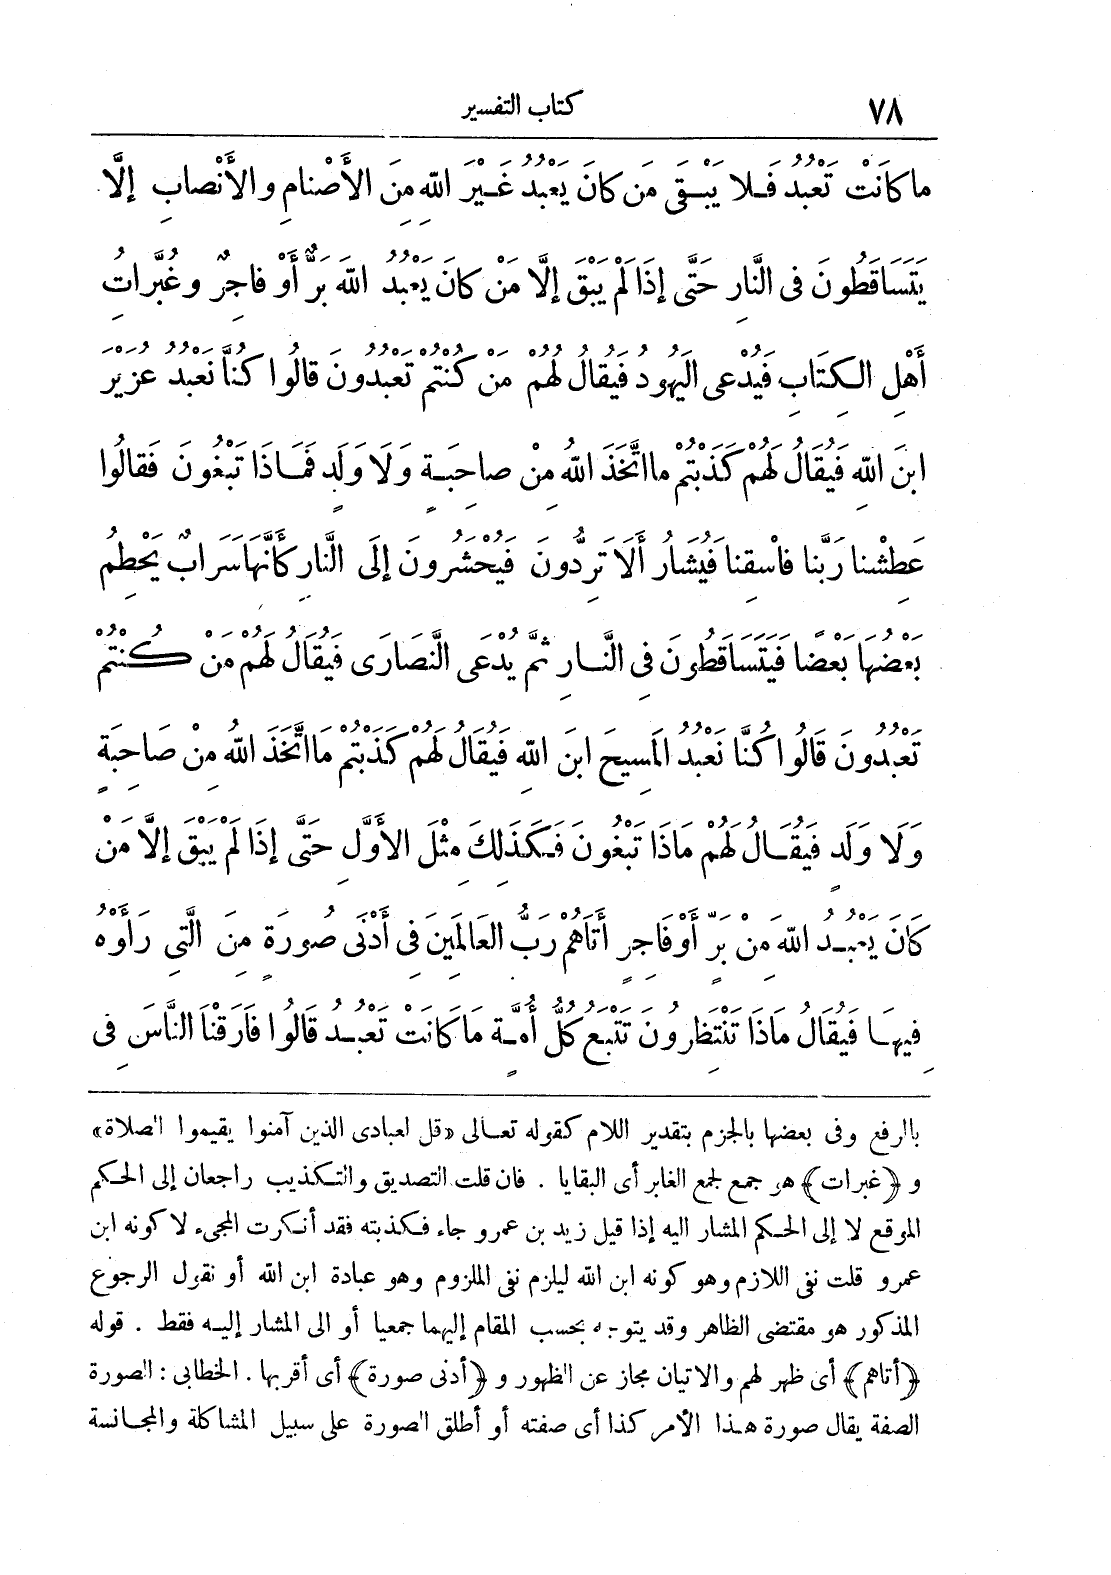 ٧٨
كتاب التفسير
ما كَانَتْ تَعْبُدُ فَلا يَبْقَى مَن كانَ يَعْبُدُ غَيْرَ اللهِ مِنَ الأَصْنامِ والأَنْصابِ إلَّا
يَتَسَاقَطُونَ فِى النَّارِ حَتَّى إذَا لَمْ يَبْقَ إلَّا مَنْ كانَ يَعْبُدُ اللهَ بَرٌّ أَوْ فاجِرٌ وغُبَّرَاتُ
أَهْلِ الكِتَابِ فَيُدْعى اليَهُودُ فَيُقالُ لَهُمْ مَنْ كُنْتُمْ تَعْبُدُونَ قالُوا كُنَّا نَعْبُدُ عُزَيْرَ
ابنَ اللهِ فَيُقالُ لَهُمْ كَذَبْتُمْ ما اتَّخَذَ اللهُ مِنْ صاحِبَةٍ وَلَا وَلَدٍ فَمَاذَا تَبْغُونَ فَقالُوا
عَطِشْنا رَبَّنا فاسْقِنا فَيُشارُ أَلَا تَرِدُّونَ فَيُحْشَرُونَ إلَى النَّارِ كَأَنَّهَا سَرَابٌ يَحْطِمُ
بَعْضُهَا بَعْضًا فَيَتَسَاقَطُونَ فِى النَّارِ ثُمَّ يُدْعَى النَّصَارَى فَيُقَالُ لَهُمْ مَنْ كُنْتُمْ
تَعْبُدُونَ قَالُوا كُنَّا نَعْبُدُ المَسِيحَ ابنَ اللهِ فَيُقَالُ لَهُمْ كَذَبْتُمْ مَا اتَّخَذَ اللهُ مِنْ صَاحِبَةٍ
وَلَا وَلَدٍ فَيُقَالُ لَهُمْ مَاذَا تَبْغُونَ فَكَذَلِكَ مِثْلَ الأَوَّلِ حَتَّى إذَا لَمْ يَبْقَ إلَّا مَنْ
كَانَ يَعْبُدُ اللهَ مِنْ بَرٍّ أَوْ فَاجِرٍ أَتَاهُمْ رَبُّ العَالَمِينَ فِى أَدْنَى صُورَةٍ مِنَ الَّتِى رَأَوْهُ
فِيهَا فَيُقَالُ مَاذَا تَنْتَظِرُونَ تَتْبَعُ كُلُّ أُمَّةٍ مَا كَانَتْ تَعْبُدُ قَالُوا فَارَقْنَا النَّاسَ فِى
بالرفع وفى بعضها بالجزم بتقدير اللام كقوله تعالى «قل لعبادى الذين آمنوا يقيموا الصلاة»
و ﴿غبرات﴾ هو جمع لجمع الغابر أى البقايا . فان قلت التصديق والتكذيب راجعان إلى الحكم
الموقع لا إلى الحكم المشار اليه إذا قيل زيد بن عمرو جاء فكذبته فقد أنكرت المجىء لا كونه ابن
عمرو قلت نفى اللازم وهو كونه ابن الله ليلزم نفى الملزوم وهو عبادة ابن الله أو نقول الرجوع
المذكور هو مقتضى الظاهر وقد يتوجه بحسب المقام إليهما جمعيا أو الى المشار إليه فقط . قوله
﴿أتاهم﴾ أى ظهر لهم والاتيان مجاز عن الظهور و ﴿أدنى صورة﴾ أى أقربها . الخطابى : الصورة
الصفة يقال صورة هذا الأمر كذا أى صفته أو أطلق الصورة على سبيل المشاكلة والمجانسة